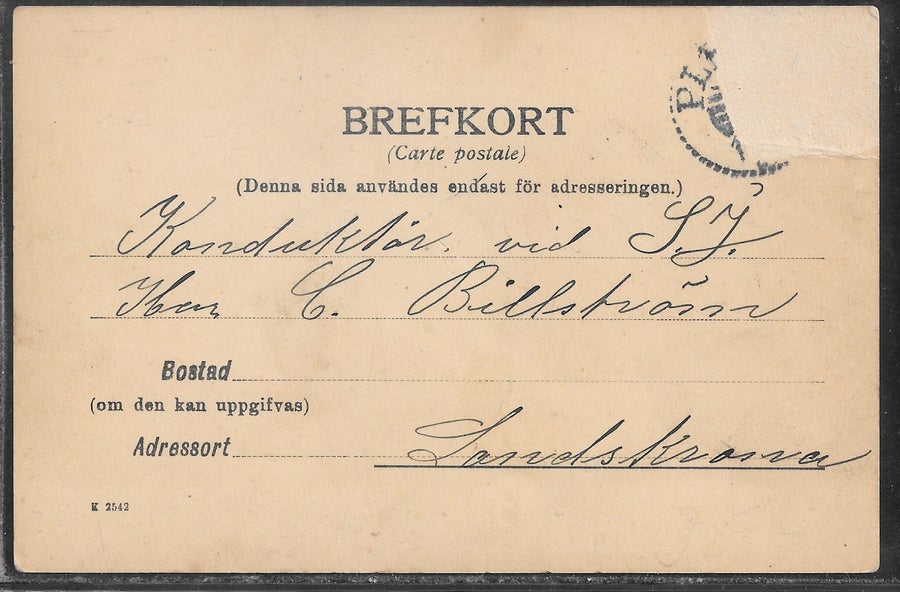 BREFKORT
(Carte postale)
(Denna sida användes endast för adresseringen.)
Konduktör vid S.J.
Herr C. Billström
Bostad
(om den kan uppgifvas)
Adressort Landskrona
K 2542